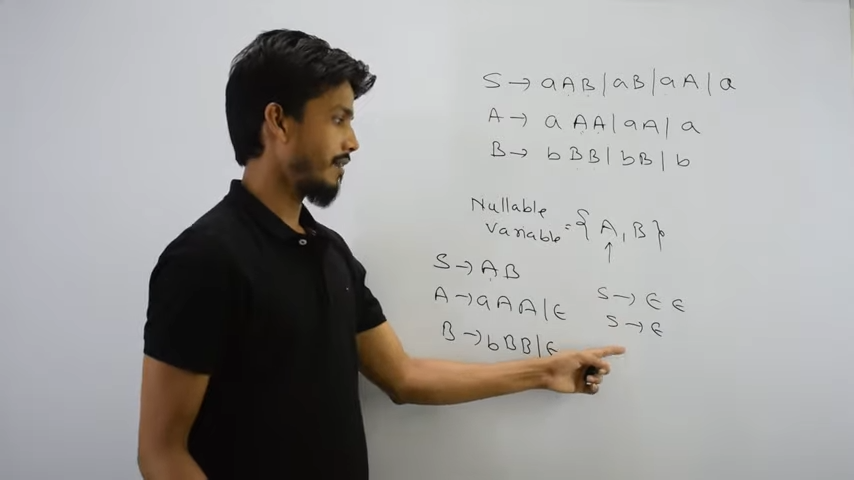 S → aAB | aB | aA | a
A → a AA | aA | a
B → bBB | bB | b
Nullable
variable = { A, B }
S → AB
A → aAA | ϵ
B → bBB | ϵ
S → ϵ ϵ
S → ϵ